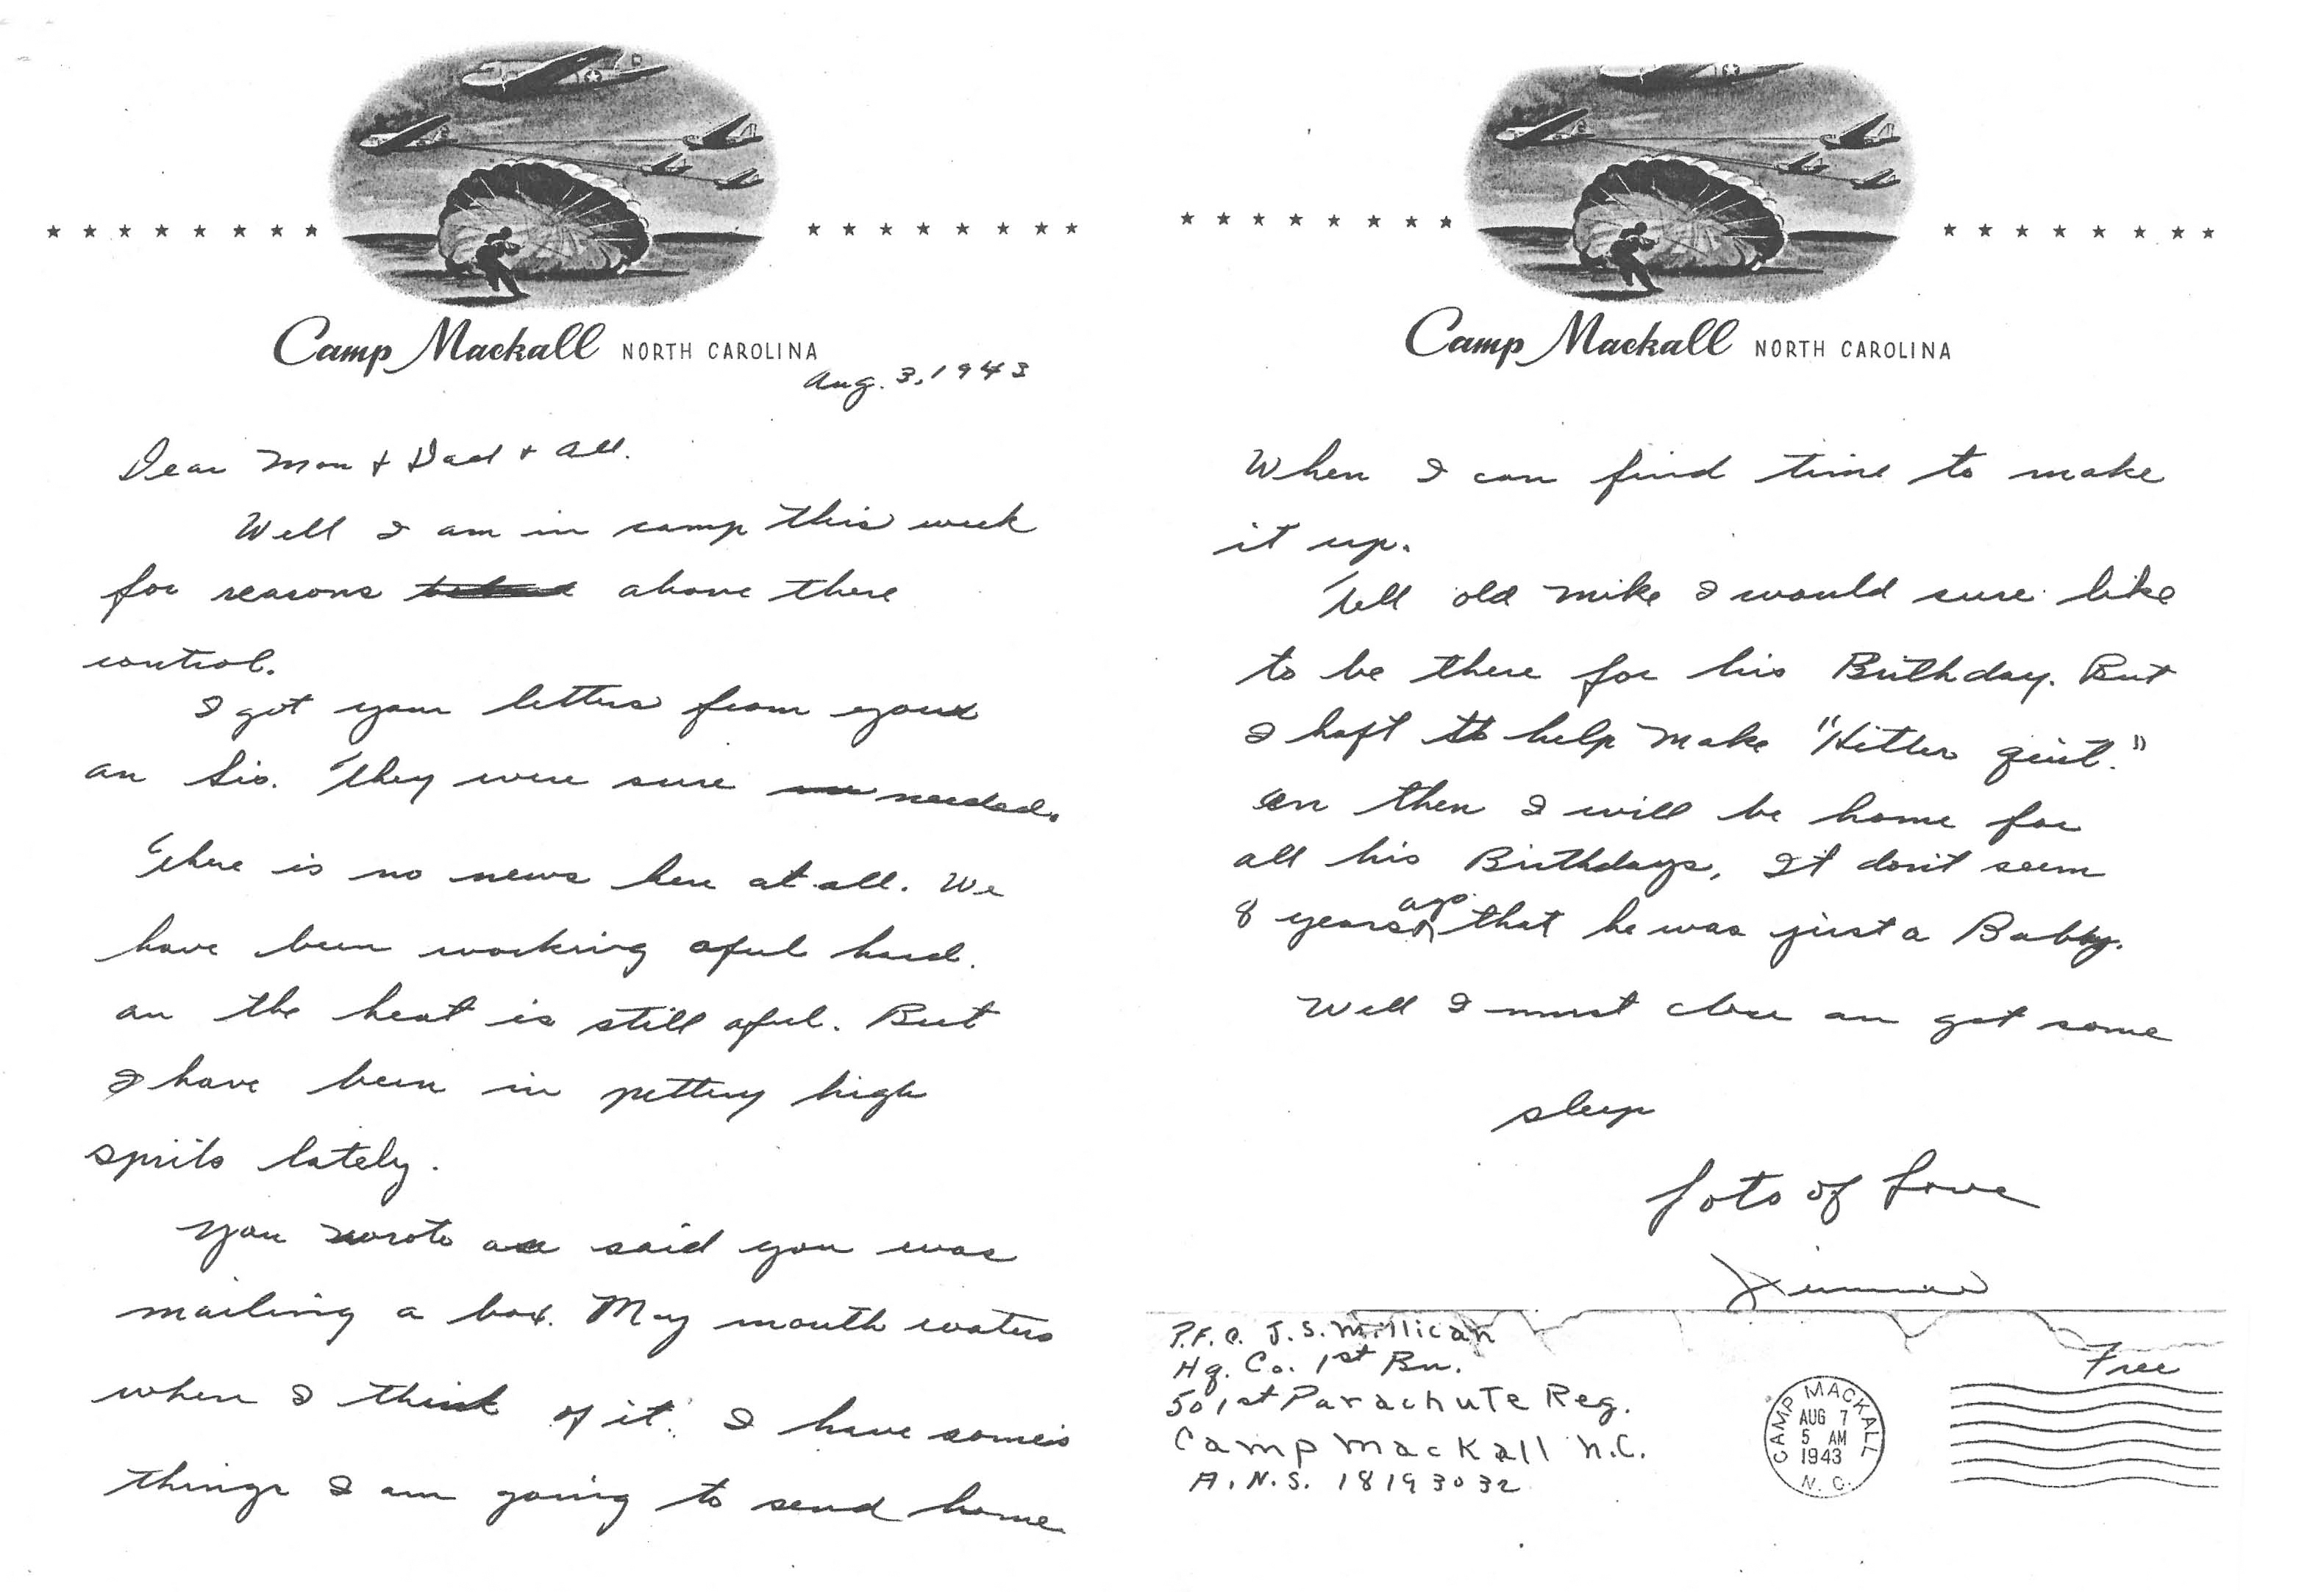 Camp Mackall NORTH CAROLINA
Aug. 3, 1943
Dear Mom + Dad + all.
Well I am in camp this week
for reasons above there
control.
I got your letters from you
an Sis. They were sure needed.
There is no news here at all. We
have been working aful hard.
an the heat is still aful. But
I have been in pettery high
sprits lately.
You wrote an said you was
mailing a box. May mouth waters
when I think of it. I have some
things I am going to send home
Camp Mackall NORTH CAROLINA
When I can find time to make
it up.
Tell old mike I would sure like
to be there for his Birthday. But
I haft to help make "Hitler quit."
an then I will be home for
all his Birthdays, It don't seem
8 years ago that he was just a Babby.
Well I must close an get some
sleep
Lots of Love
Jimmie
P.F.C. J.S. Millican
Hq. Co. 1st Bn.
501st Parachute Reg.
Camp Mackall N.C.
A.N.S. 18193032
CAMP MACKALL
AUG 7
5 AM
1943
N.C.
Free